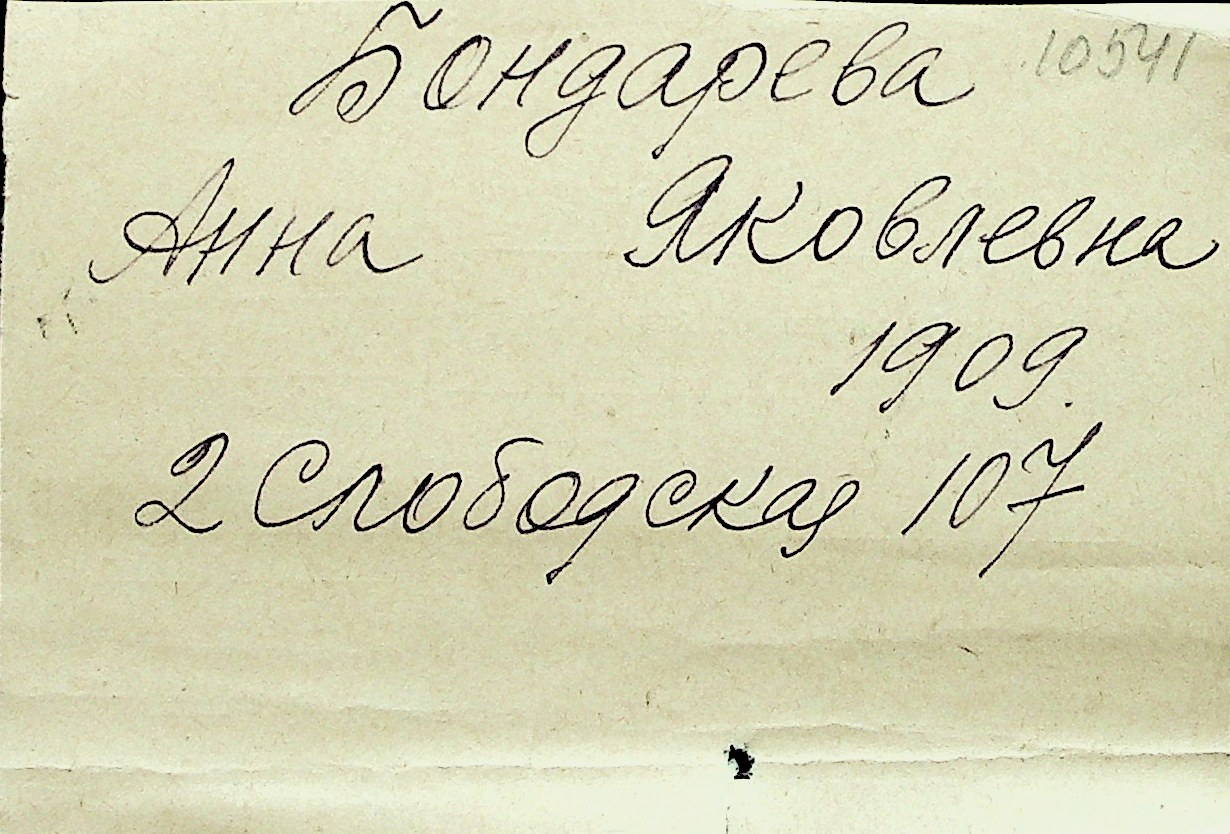 Бондарева 10541
Анна Яковлевна
1909.
2 Слободская 107